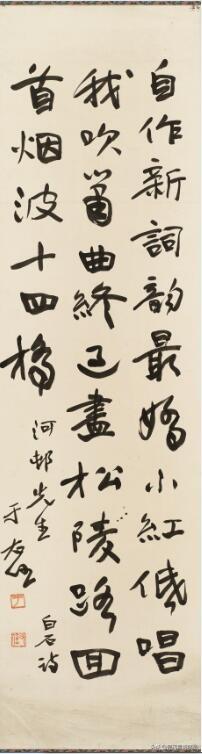 自作新詞韵最嬌小紅低唱
我吹簫曲終過盡松陵路回
首烟波十四橋
白石詩
河邨先生
于右任